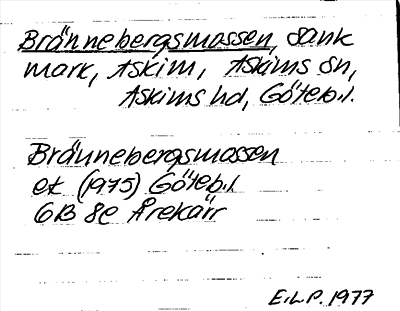 Brännebergsmossen, sank
mark, Askim, Askims sn,
Askims hd, Göteb.l.
Brännebergsmossen
ek (1975) Göteb.l
6B 8e Årekärr
E.L.P. 1977